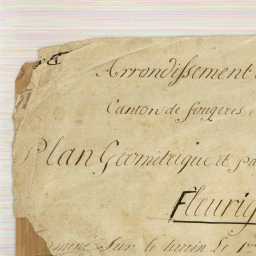 Arrondissement
Canton de fougeres
Plan Geometrique et pa
Fleurig
Sur le terrein Le 1